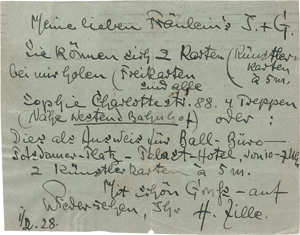 Meine lieben Fräulein's J. + G.
Sie können sich 2 Karten (Künstler-
karten
bei mir holen (Freikarten
à 5 m.
sind alle
Sophie Charlottestr. 88. 4 Treppen
(Nähe Westend Bahnhof) oder:
Dies als Ausweis für Ball-Büro-
Potsdamer-Platz - Palast-Hotel
2 Künstlerkarten à 5 m.
Mit schön Gruß - auf
Wiedersehen, Ihr H. Zille.
28.